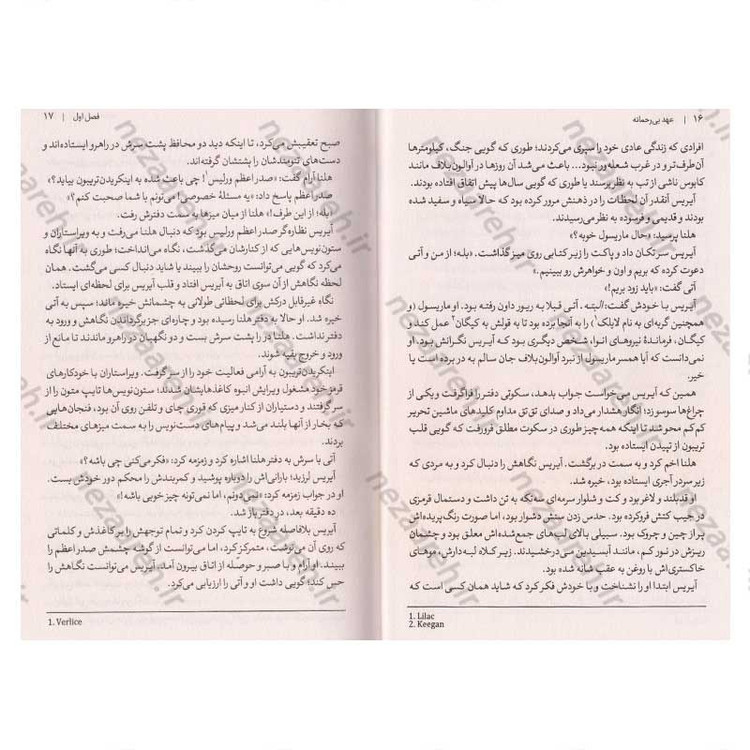 ۱۶ | عهد بی‌رحمانه
افرادی که زندگی عادی خود را سپری می‌کردند؛ طوری که گویی جنگ، کیلومترها
آن‌طرف‌تر و در غرب شعله‌ور نبود... باعث می‌شد آن روزها در آوالون‌بلاف مانند
کابوس ناشی از تب به نظر برسند یا طوری که گویی سال‌ها پیش اتفاق افتاده بودند.
آیریس آنقدر آن لحظات را در ذهنش مرور کرده بود که حالا سیاه و سفید شده
بودند و قدیمی و فرسوده به نظر می‌رسیدند.
هلنا پرسید: «حال ماریسول خوبه؟»
آیریس سر تکان داد و پاکت را زیر کتابی روی میز گذاشت. «بله؛ از من و آتی
دعوت کرده که بریم و اون و خواهرش رو ببینیم.»
آتی گفت: «باید زود بریم!»
آیریس با خودش گفت: البته. آتی قبلا به ریور داون رفته بود. او ماریسول (و
همچنین گربه‌ای به نام لایلک۱) را به آنجا برده بود تا به قولش به کیگان۲ عمل کند و
کیگان، فرماندهٔ نیروهای انوا، شخص دیگری بود که آیریس نگرانش بود. او
نمی‌دانست که آیا همسر ماریسول از نبرد آوالون‌بلاف جان سالم به در برده است یا
خیر.
همین که آیریس می‌خواست جواب بدهد، سکوتی دفتر را فرا گرفت و یکی از
چراغ‌ها سوسو زد؛ انگار هشدار می‌داد و صدای تق تق مداوم کلیدهای ماشین تحریر
کم کم محو شدند تا اینکه همه چیز طوری در سکوت مطلق فرو رفت که گویی قلب
تریبون از تپیدن ایستاده بود.
هلنا اخم کرد و به سمت در برگشت. آیریس نگاهش را دنبال کرد و به مردی که
زیر سردر آجری ایستاده بود، خیره شد.
او قدبلند و لاغر بود و کت و شلوار سرمه‌ای سه‌تکه به تن داشت و دستمال قرمزی
در جیب کتش فرو کرده بود. حدس زدن سنش دشوار بود، اما صورت رنگ‌پریده‌اش
پر از چین و چروک بود. سبیلی بالای لب‌های جمع‌شده‌اش معلق بود و چشمان
ریزش در نور کم، مانند آبسیدین می‌درخشیدند. زیر کلاه لبه‌دارش، موهای
خاکستری‌اش با روغن به عقب شانه شده بود.
آیریس ابتدا او را نشناخت و با خودش فکر کرد که شاید همان کسی است که
1. Lilac
2. Keegan
فصل اول | ۱۷
صبح تعقیبش می‌کرد، تا اینکه دید دو محافظ پشت سرش در راهرو ایستاده‌اند و
دست‌های تنومندشان را پشتشان گرفته‌اند.
هلنا آرام گفت: «صدر اعظم ورلیس۱! چی باعث شده به اینکریدن‌تریبون بیاید؟»
صدر اعظم پاسخ داد: «یه مسئلهٔ خصوصی! می‌تونم با شما صحبت کنم؟»
«بله؛ از این طرف!» هلنا از میان میزها به سمت دفترش رفت.
آیریس نظاره‌گر صدر اعظم ورلیس بود که دنبال هلنا می‌رفت و به ویراستاران و
ستون‌نویس‌هایی که از کنارشان می‌گذشت، نگاه می‌انداخت؛ طوری به آنها نگاه
می‌کرد که گویی می‌توانست روحشان را ببیند یا شاید دنبال کسی می‌گشت. همان
لحظه نگاهش از آن سوی اتاق به آیریس افتاد و قلب آیریس برای لحظه‌ای ایستاد.
نگاه غیرقابل درکش برای لحظاتی طولانی به چشمانش خیره ماند؛ سپس به آتی
خیره شد. او حالا به دفتر هلنا رسیده بود و چاره‌ای جز برگرداندن نگاهش و ورود به
دفتر نداشت. هلنا در را پشت سرش بست و دو نگهبان در راهرو ماندند تا مانع از
ورود و خروج بقیه شوند.
اینکریدن‌تریبون به آرامی فعالیت خود را از سر گرفت. ویراستاران با خودکارهای
قرمز خود مشغول ویرایش انبوه کاغذهایشان شدند؛ ستون‌نویس‌ها تایپ متون را از
سر گرفتند و دستیاران از کنار میزی که قوری چای و تلفن روی آن بود، فنجان‌هایی
که بخار از آنها بلند می‌شد و پیام‌های دست‌نویس را به سمت میزهای مختلف
بردند.
آتی با سرش به دفتر هلنا اشاره کرد و زمزمه کرد: «فکر می‌کنی چی باشه؟»
آیریس لرزید؛ بارانی‌اش را دوباره پوشید و کمربندش را محکم دور خودش بست.
او در جواب زمزمه کرد: «نمی‌دونم، اما نمی‌تونه چیز خوبی باشه!»
ده دقیقه بعد، در دفتر باز شد.
آیریس بلافاصله شروع به تایپ کردن کرد و تمام توجهش را بر کاغذش و کلماتی
که روی آن می‌نوشت، متمرکز کرد، اما می‌توانست از گوشه چشمش صدر اعظم را
ببیند. او آرام و با صبر و حوصله از اتاق بیرون آمد، آیریس می‌توانست نگاهش را
حس کند؛ گویی داشت او و آتی را ارزیابی می‌کرد.
1. Verlice
nezaareh.ir